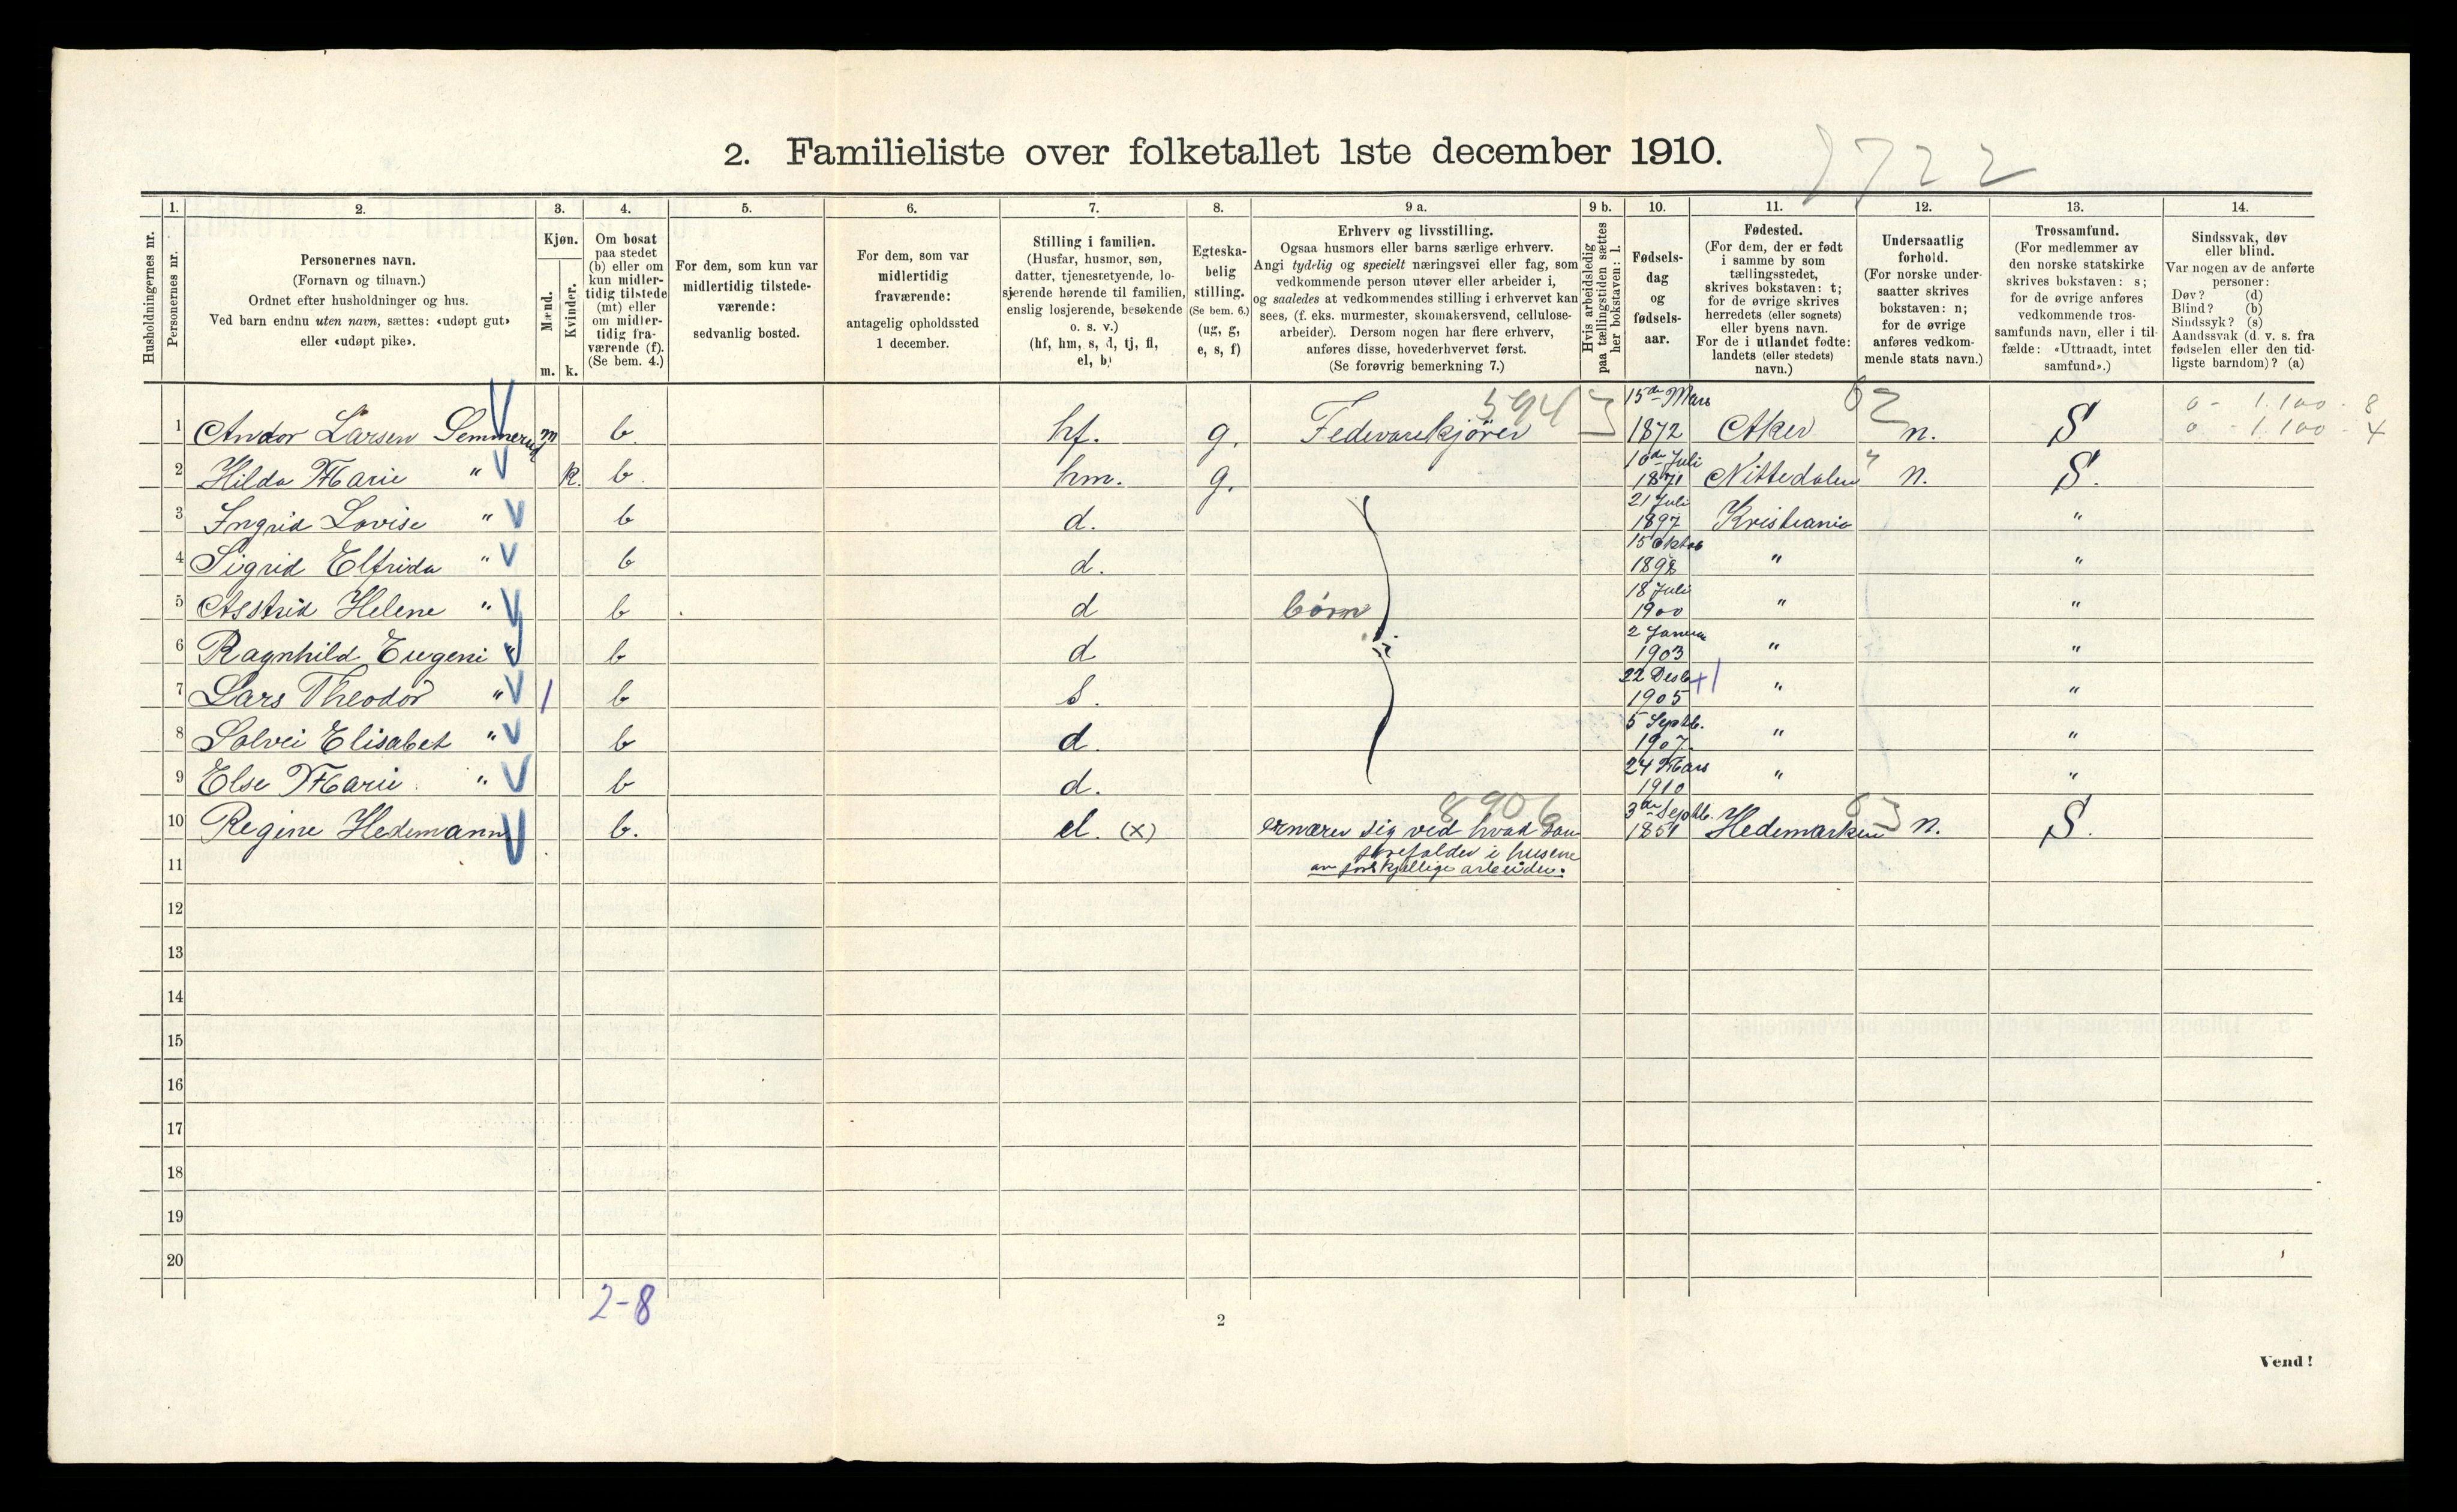 2. Familieliste over folketallet 1ste december 1910.
1722
1. 2. 3. 4. 5. 6. 7. 8. 9 a. 9 b. 10. 11. 12. 13. 14.
Husholdningernes nr.
Personernes nr.
Personernes navn.
(Fornavn og tilnavn.)
Ordnet efter husholdninger og hus.
Ved barn endnu uten navn, sættes: «udøpt gut»
eller «udøpt pike».
Kjøn.
Mænd.
Kvinder.
m. k.
Om bosat
paa stedet
(b) eller om
kun midler-
tidig tilstede
(mt) eller
om midler-
tidig fra-
værende (f).
(Se bem. 4.)
For dem, som kun var
midlertidig tilstede-
værende:
sedvanlig bosted.
For dem, som var
midlertidig
fraværende:
antagelig opholdssted
1 december.
Stilling i familien.
(Husfar, husmor, søn,
datter, tjenestetyende, lo-
sjerende hørende til familien,
enslig losjerende, besøkende
o. s. v.)
(hf, hm, s, d, tj, fl,
el, b)
Egteska-
belig
stilling.
(Se bem. 6.)
(ug, g,
e, s, f)
Erhverv og livsstilling.
Ogsaa husmors eller barns særlige erhverv.
Angi tydelig og specielt næringsvei eller fag, som
vedkommende person utøver eller arbeider i,
og saaledes at vedkommendes stilling i erhvervet kan
sees, (f. eks. murmester, skomakersvend, cellulose-
arbeider). Dersom nogen har flere erhverv,
anføres disse, hovederhvervet først.
(Se forøvrig bemerkning 7.)
Hvis arbeidsledig
paa tællingstiden sættes
her bokstaven: l.
Fødsels-
dag
og
fødsels-
aar.
Fødested.
(For dem, der er født
i samme by som
tællingsstedet,
skrives bokstaven: t;
for de øvrige skrives
herredets (eller sognets)
eller byens navn.
For de i utlandet fødte:
landets (eller stedets)
navn.)
Undersaatlig
forhold.
(For norske under-
saatter skrives
bokstaven: n;
for de øvrige
anføres vedkom-
mende stats navn.)
Trossamfund.
(For medlemmer av
den norske statskirke
skrives bokstaven: s;
for de øvrige anføres
vedkommende tros-
samfunds navn, eller i til-
fælde: «Uttraadt, intet
samfund».)
Sindssvak, døv
eller blind.
Var nogen av de anførte
personer:
Døv? (d)
Blind? (b)
Sindssyk? (s)
Aandssvak (d. v. s. fra
fødselen eller den tid-
ligste barndom)? (a)
1 Andor Larsen Semmerud m b. hf. g. Fedevarekjører 594 15de Mars 1872 Aker 62 n. S 0 - 1.100 - 8
0 - 1.100 - 4
2 Hilda Marie " k. b. hm. g. 10de Juli 1871 Nittedalen n. S.
3 Ingrid Lovise " b d. 21 Juli 1897 Kristiania "
4 Sigrid Elfrida " b d. 15 Oktob 1898 " "
5 Asstrid Helene " b d børn 18 Juli 1900 " "
6 Ragnhild Eugeni " b d 2 Januar 1903 " "
7 Lars Theodor " 1 b s. 22 Desb +1 1905 " "
8 Solvei Elisabet " b d. 5 Septb. 1907. " "
9 Else Marie " b d. 24 Mars 1910 " "
10 Regine Hedemann b. el. (x) 8906 ernærer sig ved hvad som 3de Septb. 1851 Hedemarken 63 n. S.
11 forefalder i husene
av forskjellige arbeider.
12
13
14
15
16
17
18
19
20
2-8
2
Vend!